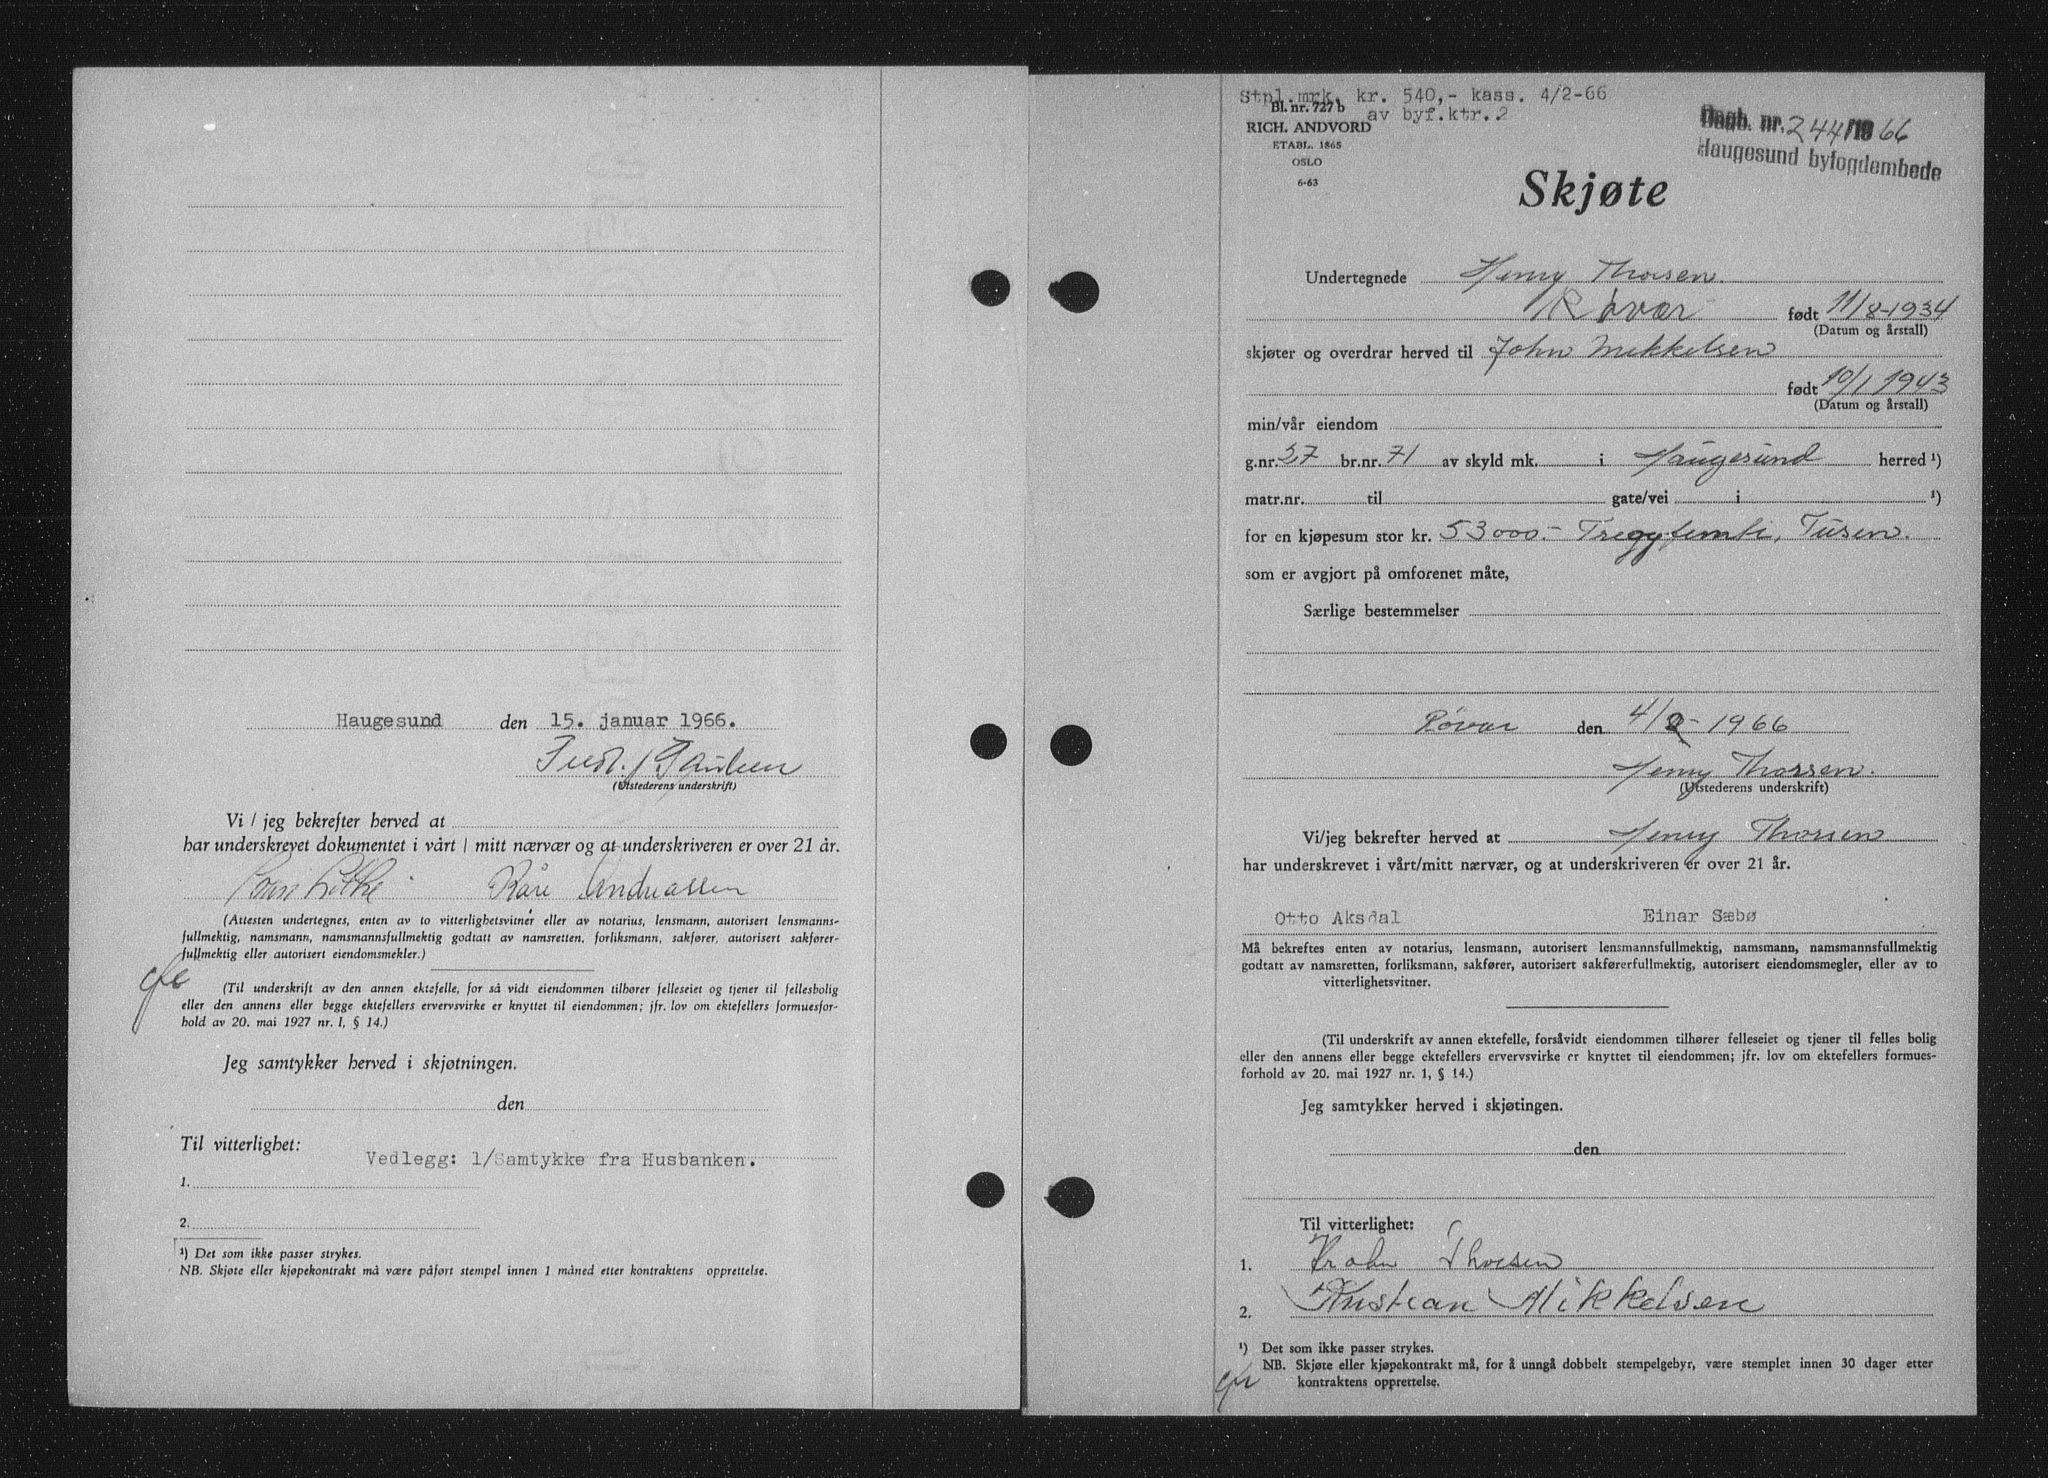 Haugesund den 15. januar 1966.
(Utstederens underskrift)
Vi / jeg bekrefter herved at
har underskrevet dokumentet i vårt / mitt nærvær og at underskriveren er over 21 år.
Kåre Andreassen
(Attesten undertegnes, enten av to vitterlighetsvitner eller av notarius, lensmann, autorisert lensmanns-
fullmektig, namsmann, namsmannsfullmektig godtatt av namsretten, forliksmann, sakfører, autorisert sakfører-
fullmektig eller autorisert eiendomsmekler.)
(Til underskrift av den annen ektefelle, for så vidt eiendommen tilhører felleseiet og tjener til fellesbolig
eller den annens eller begge ektefellers ervervsvirke er knyttet til eiendommen; jfr. lov om ektefellers formuesfor-
hold av 20. mai 1927 nr. 1, § 14.)
Jeg samtykker herved i skjøtningen.
den
Til vitterlighet:
Vedlegg: 1/Samtykke fra Husbanken.
1.
2.
¹) Det som ikke passer strykes.
NB. Skjøte eller kjøpekontrakt må være påført stempel innen 1 måned etter kontraktens opprettelse.
Stpl.mrk. kr. 540,- kass. 4/2-66
av byf.ktr.2
Bl. nr. 727 b
RICH. ANDVORD
ETABL. 1865
OSLO
6-63
Dagb. nr. 244/1966
Haugesund byfogdembede
Skjøte
Undertegnede Henry Thorsen.
Røvær født 11/8-1934
(Datum og årstall)
skjøter og overdrar herved til John Mikkelsen
født 10/1 1943
(Datum og årstall)
min/vår eiendom
g.nr. 27 br.nr. 71 av skyld mk. i Haugesund herred ¹)
matr.nr. til gate/vei i ¹)
for en kjøpesum stor kr. 53000.- Treogfemti, Tusen.
som er avgjort på omforenet måte,
Særlige bestemmelser
Røvær den 4/2-1966
Henry Thorsen.
(Utstederens underskrift)
Vi/jeg bekrefter herved at Henry Thorsen
har underskrevet i vårt/mitt nærvær, og at underskriveren er over 21 år.
Otto Aksdal Einar Sæbø
Må bekreftes enten av notarius, lensmann, autorisert lensmannsfullmektig, namsmann, namsmannsfullmektig
godtatt av namsretten, forliksmann, sakfører, autorisert sakførerfullmektig, autorisert eiendomsmegler, eller av to
vitterlighetsvitner.
(Til underskrift av annen ektefelle, forsåvidt eiendommen tilhører felleseiet og tjener til felles bolig
eller den annens eller begge ektefellers ervervsvirke er knyttet til eiendommen; jfr. lov om ektefellers formues-
forhold av 20. mai 1927 nr. 1, § 14.)
Jeg samtykker herved i skjøtingen.
den
Til vitterlighet:
1. Krohn Thorsen
2. Kristian Mikkelsen
¹) Det som ikke passer strykes.
NB. Skjøte eller kjøpekontrakt må, for å unngå dobbelt stempelgebyr, være stemplet innen 30 dager etter
kontraktens opprettelse.